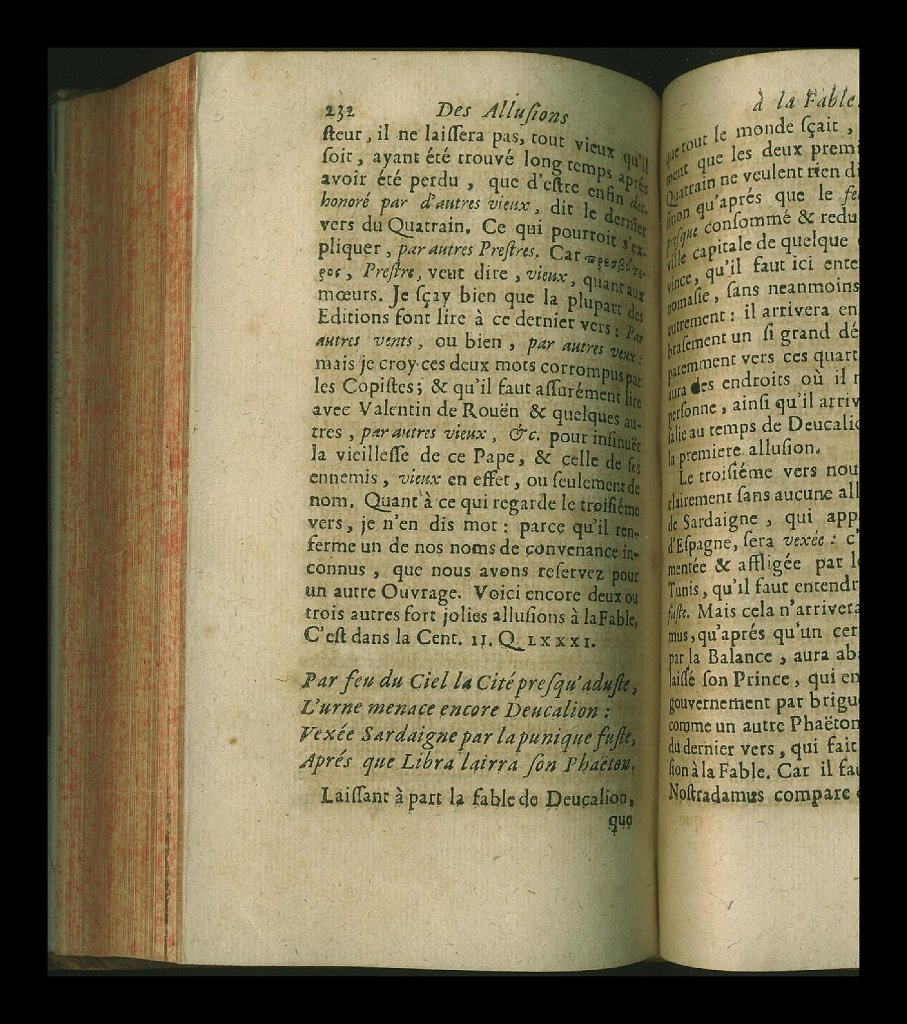 232 Des Alluſions
ſteur, il ne laiſſera pas, tout vieux qu'il
ſoit, ayant été trouvé long temps aprés
avoir été perdu, que d'eſtre enfin des-
honoré par d'autres vieux, dit le dernier
vers du Quatrain. Ce qui pourroit s'ex-
pliquer, par autres Preſtres. Car
Preſtre, veut dire, vieux, quant aux
mœurs. Je ſçay bien que la plupart des
Editions font lire à ce dernier vers: Par
autres vents, ou bien, par autres veux:
mais je croy ces deux mots corrompus par
les Copiſtes; & qu'il faut aſſurément lire
avec Valentin de Rouën & quelques au-
tres, par autres vieux, &c. pour inſinuër
la vieilleſſe de ce Pape, & celle de ſes
ennemis, vieux en effet, ou ſeulement de
nom. Quant à ce qui regarde le troiſiéme
vers, je n'en dis mot: parce qu'il ren-
ferme un de nos noms de convenance in-
connus, que nous avons reſervez pour
un autre Ouvrage. Voici encore deux ou
trois autres fort jolies alluſions à la Fable,
C'eſt dans la Cent. 11. Q. LXXXI.
Par feu du Ciel la Cité preſqu'aduſte,
L'urne menace encore Deucalion:
Vexée Sardaigne par la punique fuſte,
Aprés que Libra lairra ſon Phaëton.
Laiſſant à part la fable de Deucalion,
que
à la Fable.
que tout le monde ſçait,
ment que les deux premi
Quatrain ne veulent rien di
ſinon qu'aprés que le fe
preſque conſommé & redu
ville capitale de quelque
vince, qu'il faut ici ente
nomaſie, ſans neanmoins
autrement: il arrivera en
braſement un ſi grand dé
paremment vers ces quart
aura des endroits où il n
perſonne, ainſi qu'il arriv
ſalie au temps de Deucalio
la premiere alluſion.
Le troiſiéme vers nou
clairement ſans aucune all
de Sardaigne, qui app
d'Eſpagne, ſera vexée: c'
mentée & affligée par l
Tunis, qu'il faut entendr
fuſte. Mais cela n'arrivera
mus, qu'aprés qu'un cer
par la Balance, aura ab
laiſſé ſon Prince, qui en
gouvernement par brigu
comme un autre Phaëton
du dernier vers, qui fait
ſion à la Fable. Car il fau
Noſtradamus compare